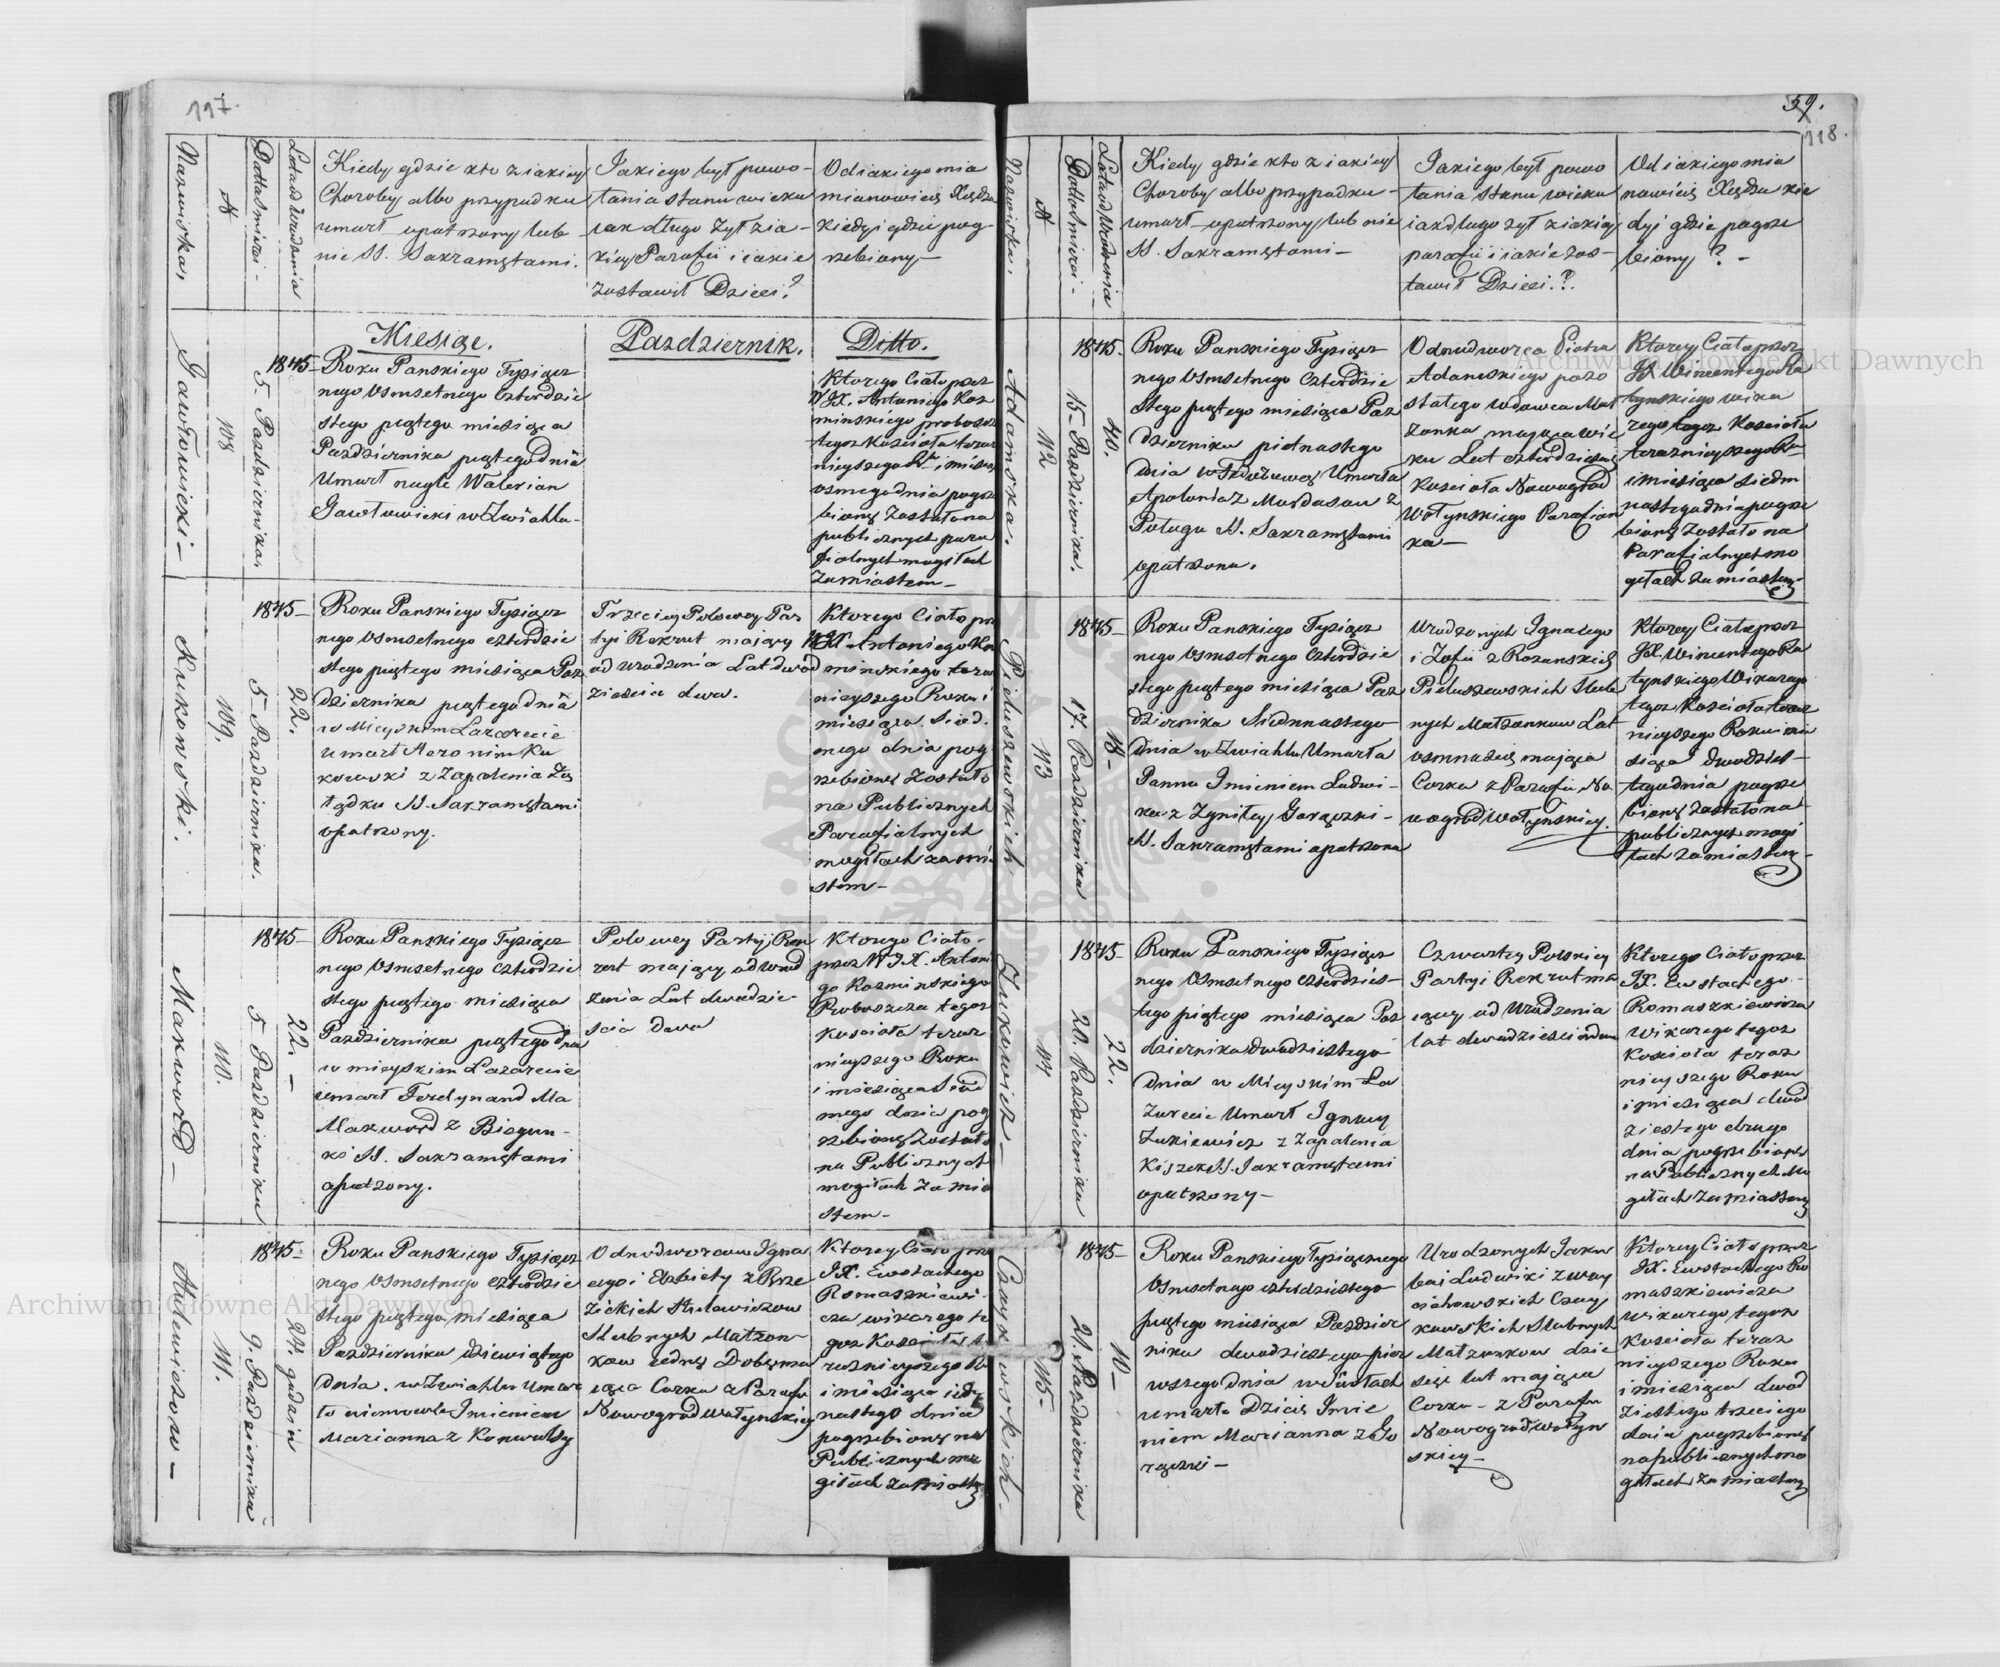 117.
Nazwiska.
N
Datta śmierci.
Lata od Urodzenia
Kiedy gdzie kto z iakiey
Choroby albo przypadku
umarł opatrzony lub
nie SS. Sakramętami.
Jakiego był powo-
łania stanu wieku
iak długo żył z ia-
kiey Parafii i iakie
zostawił Dzieci?
Od iakiego mia
mianowicie Xiędza
kiedy i gdzie pog-
rzebiony—
Miesiąc.
Pazdziernik.
Ditto.
Gawłowicki—
108
5. Pazdziernika.
1845—
Roku Panskiego Tysiącz
nego Osmsetnego Czterdzie
stego piątego miesiąca
Pazdziernika piątego dnia
Umarł nagle Walerian
Gawłowicki w Zwiahlu—
Ktorego Ciało przez
WJX. Antoniego Koz
minskiego probosz
tegoz Koscioła teraz
nieyszego Rku i mies
osmego dnia pogrz
bione Zostało na
publicznych para
fialnych mogiłach
za miastem—
Kukowski.
109.
5 Pazdziernika.
22.
1845—
Roku Panskiego Tysiącz
nego Osmsetnego czterdzie
stego piątego miesiąca Paz
dziernika piątego dnia
w Mieyskim Lazarecie
umarł Heronim Ku
kowski z Zapalenia Żo
łądku SS. Sakramętami
opatrzony.
Trzeciey Polowey Par
tyi Rekrut mający
od urodzenia Lat dwad
ziescia dwa.
Ktorego Ciało prz
WJX Antoniego Ko
minskiego teraz
nieyszego Roku i
miesiąca Siod.
mego dnia pog
rzebione Zostało
na Publicznych
Parafialnych
mogiłach za mia
stem—
Makward—
110.
5 Pazdziernika
22.—
1845—
Roku Panskiego Tysiącz
nego Osmsetnego czterdzie
stego piątego miesiąca
Pazdziernika piątego dnia
w mieyskim Lazarecie
umarł Ferdynand Ma
Makward z Biegun-
ki SS. Sakramętami
opatrzony.
Polowey Partyi Rek
rut mający od Urod
zenia Lat dwadzie-
scia dwa
Ktorego Ciało-
przez WJX. Antoni
go Kozminskiego
Proboszcza tegoz
Kosciola teraz
nieyszego Roku
i miesiąca Siod
mego dnia pog
rzebione Zostało
na Publicznych
mogiłach Za mia
stem—
Hulewiczow—
111.
9. Pazdziernika
24. godzin
1845—
Roku Panskiego Tysiącz
nego Osmsetnego czterdzie
stego piątego miesiąca
Pazdziernika dziewiątego
dnia. w Zwiahlu Umar
ło niemowle Imieniem
Marianna z Konwulsy
Odnodworcow Igna
cego i Elzbiety z Brze
zickich Hulewiczow
Slubnych Małzon-
kow iedne Dobę ma
iąca Corka z Parafii
Nowogrod Wołynskiey
Ktorey Ciało prz
JX. Eustachego
Romaszkiewi
cza wikarego te
goz Kościoła t
raznieyszego R
i miesiąca iedy
nastego dnia
pogrzebione na
Publicznych mo
giłach za miastem
59.
118.
Nazwiska.
N
Datta śmierci.
Lata od Urodzenia
Kiedy gdzie kto z iakiey
Choroby albo przypadku
umarł opatrzony lub nie
SS. Sakramętami—
Jakiego był powo
łania stanu wieku
i iak długo żył z iakiey
parafii i iakie zos-
tawił Dzieci.?.
Od iakiego mia
nowicie Xiędza kie
dy i gdzie pogrze
biony?—
Adamska.
112
15 Pazdziernika.
40.
1845.
Roku Panskiego Tysiącz
nego Osmsetnego Czterdzie
stego piątego miesiąca Paz
dziernika pietnastego
dnia Umarła
Apolonia z Mordasow z
Połogu SS. Sakramętami
opatrzona.
Odnodworca Piotra
Adamskiego pozo
stałego wdowca Mał
zonka maiąca wie
ku Lat czterdziesci
Kosciola Nowogrod
Wołynskiego Parafian
ka—
Ktorey Ciało przez
JX Wincentego Ra
tynskiego wika
rego tegoz Kosciola
teraznieyszego Rk
i miesiąca siedm
nastego dnia pogrze
bione Zostało na
Parafialnych mo
giłach za miastem—
Pieluszewskich
113
17. Pazdziernika
18—
1845—
Roku Panskiego Tysiącz
nego Osmsetnego Czterdzie
stego piątego miesiąca Paz
dziernika Siedmnastego
dnia w Zwiahlu Umarła
Panna Imieniem Ludwi-
ka z Zgniłey Gorączki—
SS. Sakramętami opatrzona
Urodzonych Ignacego
i Zofii z Rozanskich
Pieluszewskich Slub
nych Małzonkow Lat
osmnascie maiąca
Corka z Parafii No
wogrod Wołynskiey.
Ktorey Ciało przez
JX. Wincentego Ra
tynskiego Wikarego
tegoz Kosciola teraz
nieyszego Roku i mie
siąca dwudzies-
tego dnia pogrze
bione zostało na
publicznych mogi
łach za miastem—
Zukowicz—
114
20. Pazdziernika
22.
1845—
Roku Panskiego Tysiącz
nego Osmsetnego czterdzies-
tego piątego miesiąca Paz
dziernika dwudziestego
dnia w Mieyskim La
zarecie Umarł Ignacy
Zukiewicz z Zapalenia
Kiszek SS. Sakramętami
opatrzony—
Czwartey Polskiey
Partyi Rekrut ma
iący od Urodzenia
lat dwadziescia dwa
Ktorego Ciało przez
JX. Eustachego
Romaszkiewicza
Wikarego tegoz
Kosciola teraz
nieyszego Roku
i miesiąca dwud
ziestego drugo
dnia pogrzebione
na Publicznych Mo
giłach Za miastem
115—
21. Pazdziernika
10—
1845—
Roku Panskiego Tysiącznego
Osmsetnego czterdziestego
piątego miesiąca Pazdzier
nika dwudziestego pier
wszego dnia
umarło Dziecie Imie
niem Marianna z Go
rączki—
Urodzonych Jaku
ba i Ludwiki z
Slubnych
Małzonkow dzie
sięc lat maiąca
Corka—z Parafii
Nowogrod Wołyn
skiey—
Ktorey Ciało przez
JX. Eustachego Ro
maszkiewicza
Wikarego tegoz
Kosciola teraz
nieyszego Roku
i miesiąca dwud
ziestego trzeciego
dnia pogrzebione
na publicznych mo
giłach Za miastem
Archiwum Główne Akt Dawnych
Archiwum Główne Akt Dawnych